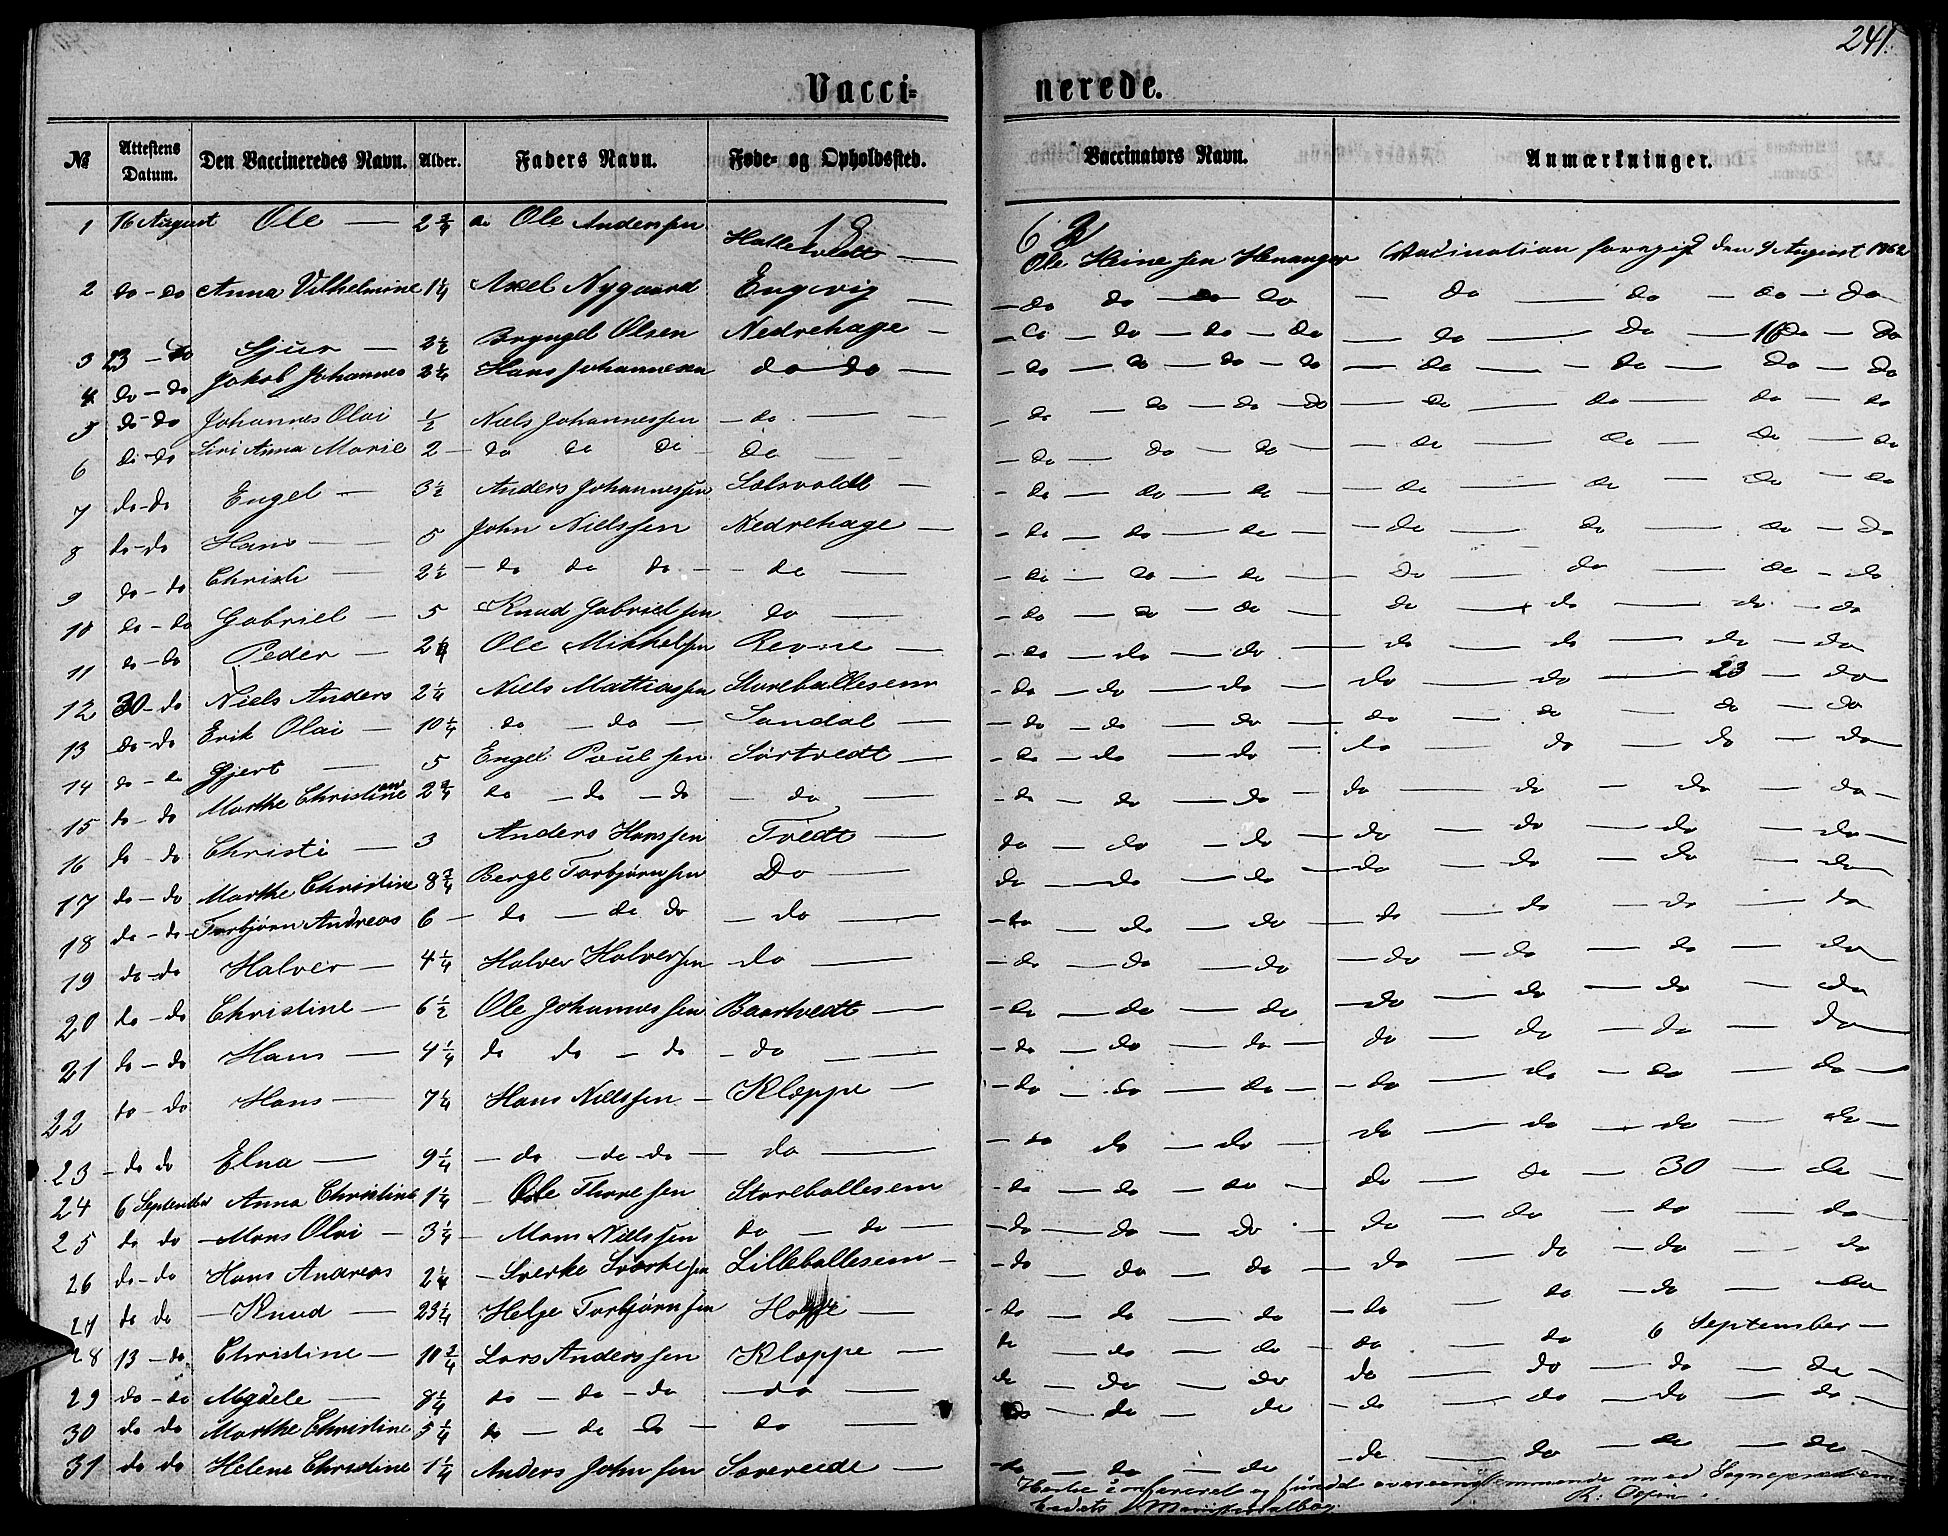 241.
Vacci- nerede.
№ Attestens Datum. Den Vaccineredes Navn. Alder. Faders Navn. Føde- og Opholdssted. Vaccinators Navn. Anmærkninger.
18 62
1 16 August Ole — 2 3/4 Ole Anderssen Hatletvedt — Ole Heinessen Henanger Vacination foregik den 9 August 1862
2 do - do Anna Vilhelmine 1 1/4 Axel Nygaard Engevig — do do do do — do — do — do — do
3 23 - do Gjur — 2 1/2 Bryngel Olsen Nedrehage — do — do — do — do — do — do — 16 do — do
4 do - do Jakob Johannes 2 1/4 Hans Johannesen do do — do — do — do — do — do — do — do — do
5 do - do Johannes Olai 1/2 Niels Johannessen — do — — do — do — do — do — do — do — do — do
6 do - do Siri Anna Marie 2 — do do do do — — do — do — do — do — do — do — do
7 do - do Engel — 3 1/2 Anders Johannessen Solsvoldt — do — do — do — do — do — do — do
8 do - do Hans — 5 John Nielssen Nedrehage — do — do — do — do — do — do — do
9 do - do Christi — 2 1/2 — do do do — do — do — do — do — do — do — do — do
10 do - do Gabriel — 5 Knud Gabrielsen do — do — do — do — do — do — do — do
11 do - do Peder — 2 1/4 Ole Mikkelsen Revne — do — do — do — do — do — do — do
12 30 - do Niels Anders 2 1/4 Niels Mattiassen Storeballesem — do — do — do do — do — 23 — do
13 do - do Erik Olai — 10 1/4 do — do — Sandal — do — do — do — do — do — do — do
14 do - do Gjert — 5 Engel Poulsen Sørtvedt — do — do — do — do — do — do — do
15 do - do Marthe Christine 2 3/4 do — do — do — do — do — do — do do — do — do — do
16 do - do Christi — 3 Anders Hanssen Tvedt — do — do — do — do — do — do — do
17 do - do Marthe Christine 8 3/4 Berge Torbjørnsen Do — do — do — do — do — do — do — do
18 do - do Torbjørn Andreas 6 — do — do do — do — do — do — do — do — do — do — do
19 do - do Halver — 4 1/4 Halver Halversen do — do — do — do — do — do — do — do
20 do - do Christine — 6 1/2 Ole Johannessen Baartvedt — do — do — do — do — do — do — do
21 do - do Hans — 4 1/4 do do — do — do — do — do — do — do — do — do — do
22 do - do Hans — 7 1/4 Hans Nielssen — Kleppe — do — do — do — do — do — do — do
23 — do do Elna — 9 1/4 — do — do - do — do — do do — do — do — do — do — do
24 6 September Anna Christine 1 1/4 — Ole Thoresen Storeballesem — do — do — do — do — do — 30 — do
25 do do — Mons Olai — 3 1/4 — Mons Nielssen do — do — do — do — do — do — do — do — do
26 do - do Hans Andreas 2 1/4 — Sverke Sverkesen Lilleballesem — do — do — do — do — do — do — do
27 do do — Knud — 23 1/4 Helge Torbjørnsen — do — do — do — do do — do — do
28 13 - do Christine — 10 3/4 Lars Anderssen Kleppe — do — do — do — do — do 6 September —
29 do - do Magdele — 8 1/4 do — do — do — do — do — do — do do — do — do — do
30 do do Marthe Christine 5 1/4 do — do do — do — do — do — do — do — do — do — do
31 do do Helene Christine 1 1/4 Anders Johnsen Sævereide — do — do — do — do — do — do — do
og fundet overeensstemmende med
Ministerialbog.